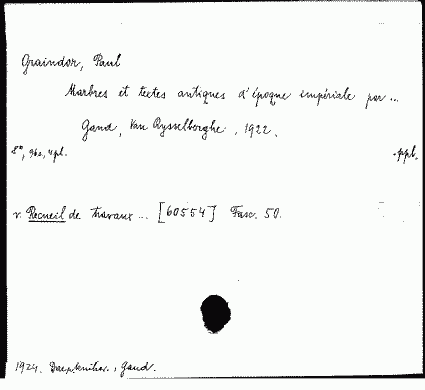 Graindor, Paul
Marbres et textes antiques d'époque impériale par ...
Gand, Van Rysselberghe, 1922.
8°, 96 p., 4 pl.
ppl.
v. Recueil de travaux ... [60554] Fasc. 50.
1924. Gand.